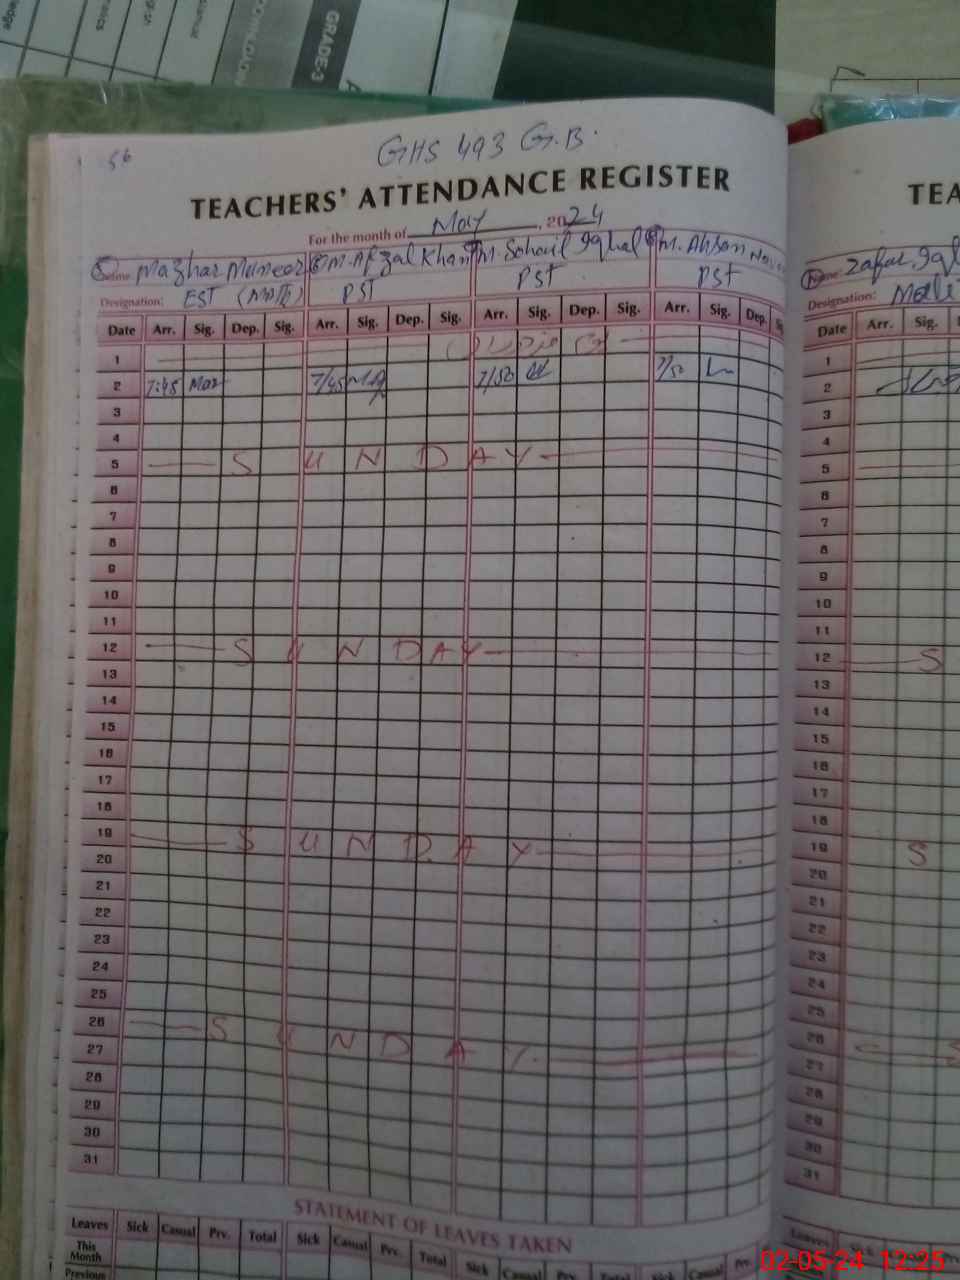 GRADE-3
56
GHS 493 G.B.
TEACHERS' ATTENDANCE REGISTER
For the month of May, 2024
Name: Mazhar Muneer M. Afzal Khan M. Sohail Iqbal M. Ahsan
Designation: EST (Math) PST PST PST
Date Arr. Sig. Dep. Sig. Arr. Sig. Dep. Sig. Arr. Sig. Dep. Sig. Arr. Sig. Dep.
1
2 7:45 7/45 7/50 7/50
3
4
5 SUNDAY
6
7
8
9
10
11
12 SUNDAY
13
14
15
16
17
18
19 SUNDAY
20
21
22
23
24
25
26 SUNDAY
27
28
29
30
31
STATEMENT OF LEAVES TAKEN
Leaves Sick Casual Prv. Total Sick Casual Prv. Total Sick Casual Prv. Sick Casual Prv.
This Month
Previous
TEA
Name: Zafar
Designation:
Date Arr. Sig.
1
2
3
4
5
6
7
8
9
10
11
12 S
13
14
15
16
17
18
19 S
20
21
22
23
24
25
26 S
27
28
29
30
31
Leaves Sick Casual
02-05-24 12:25